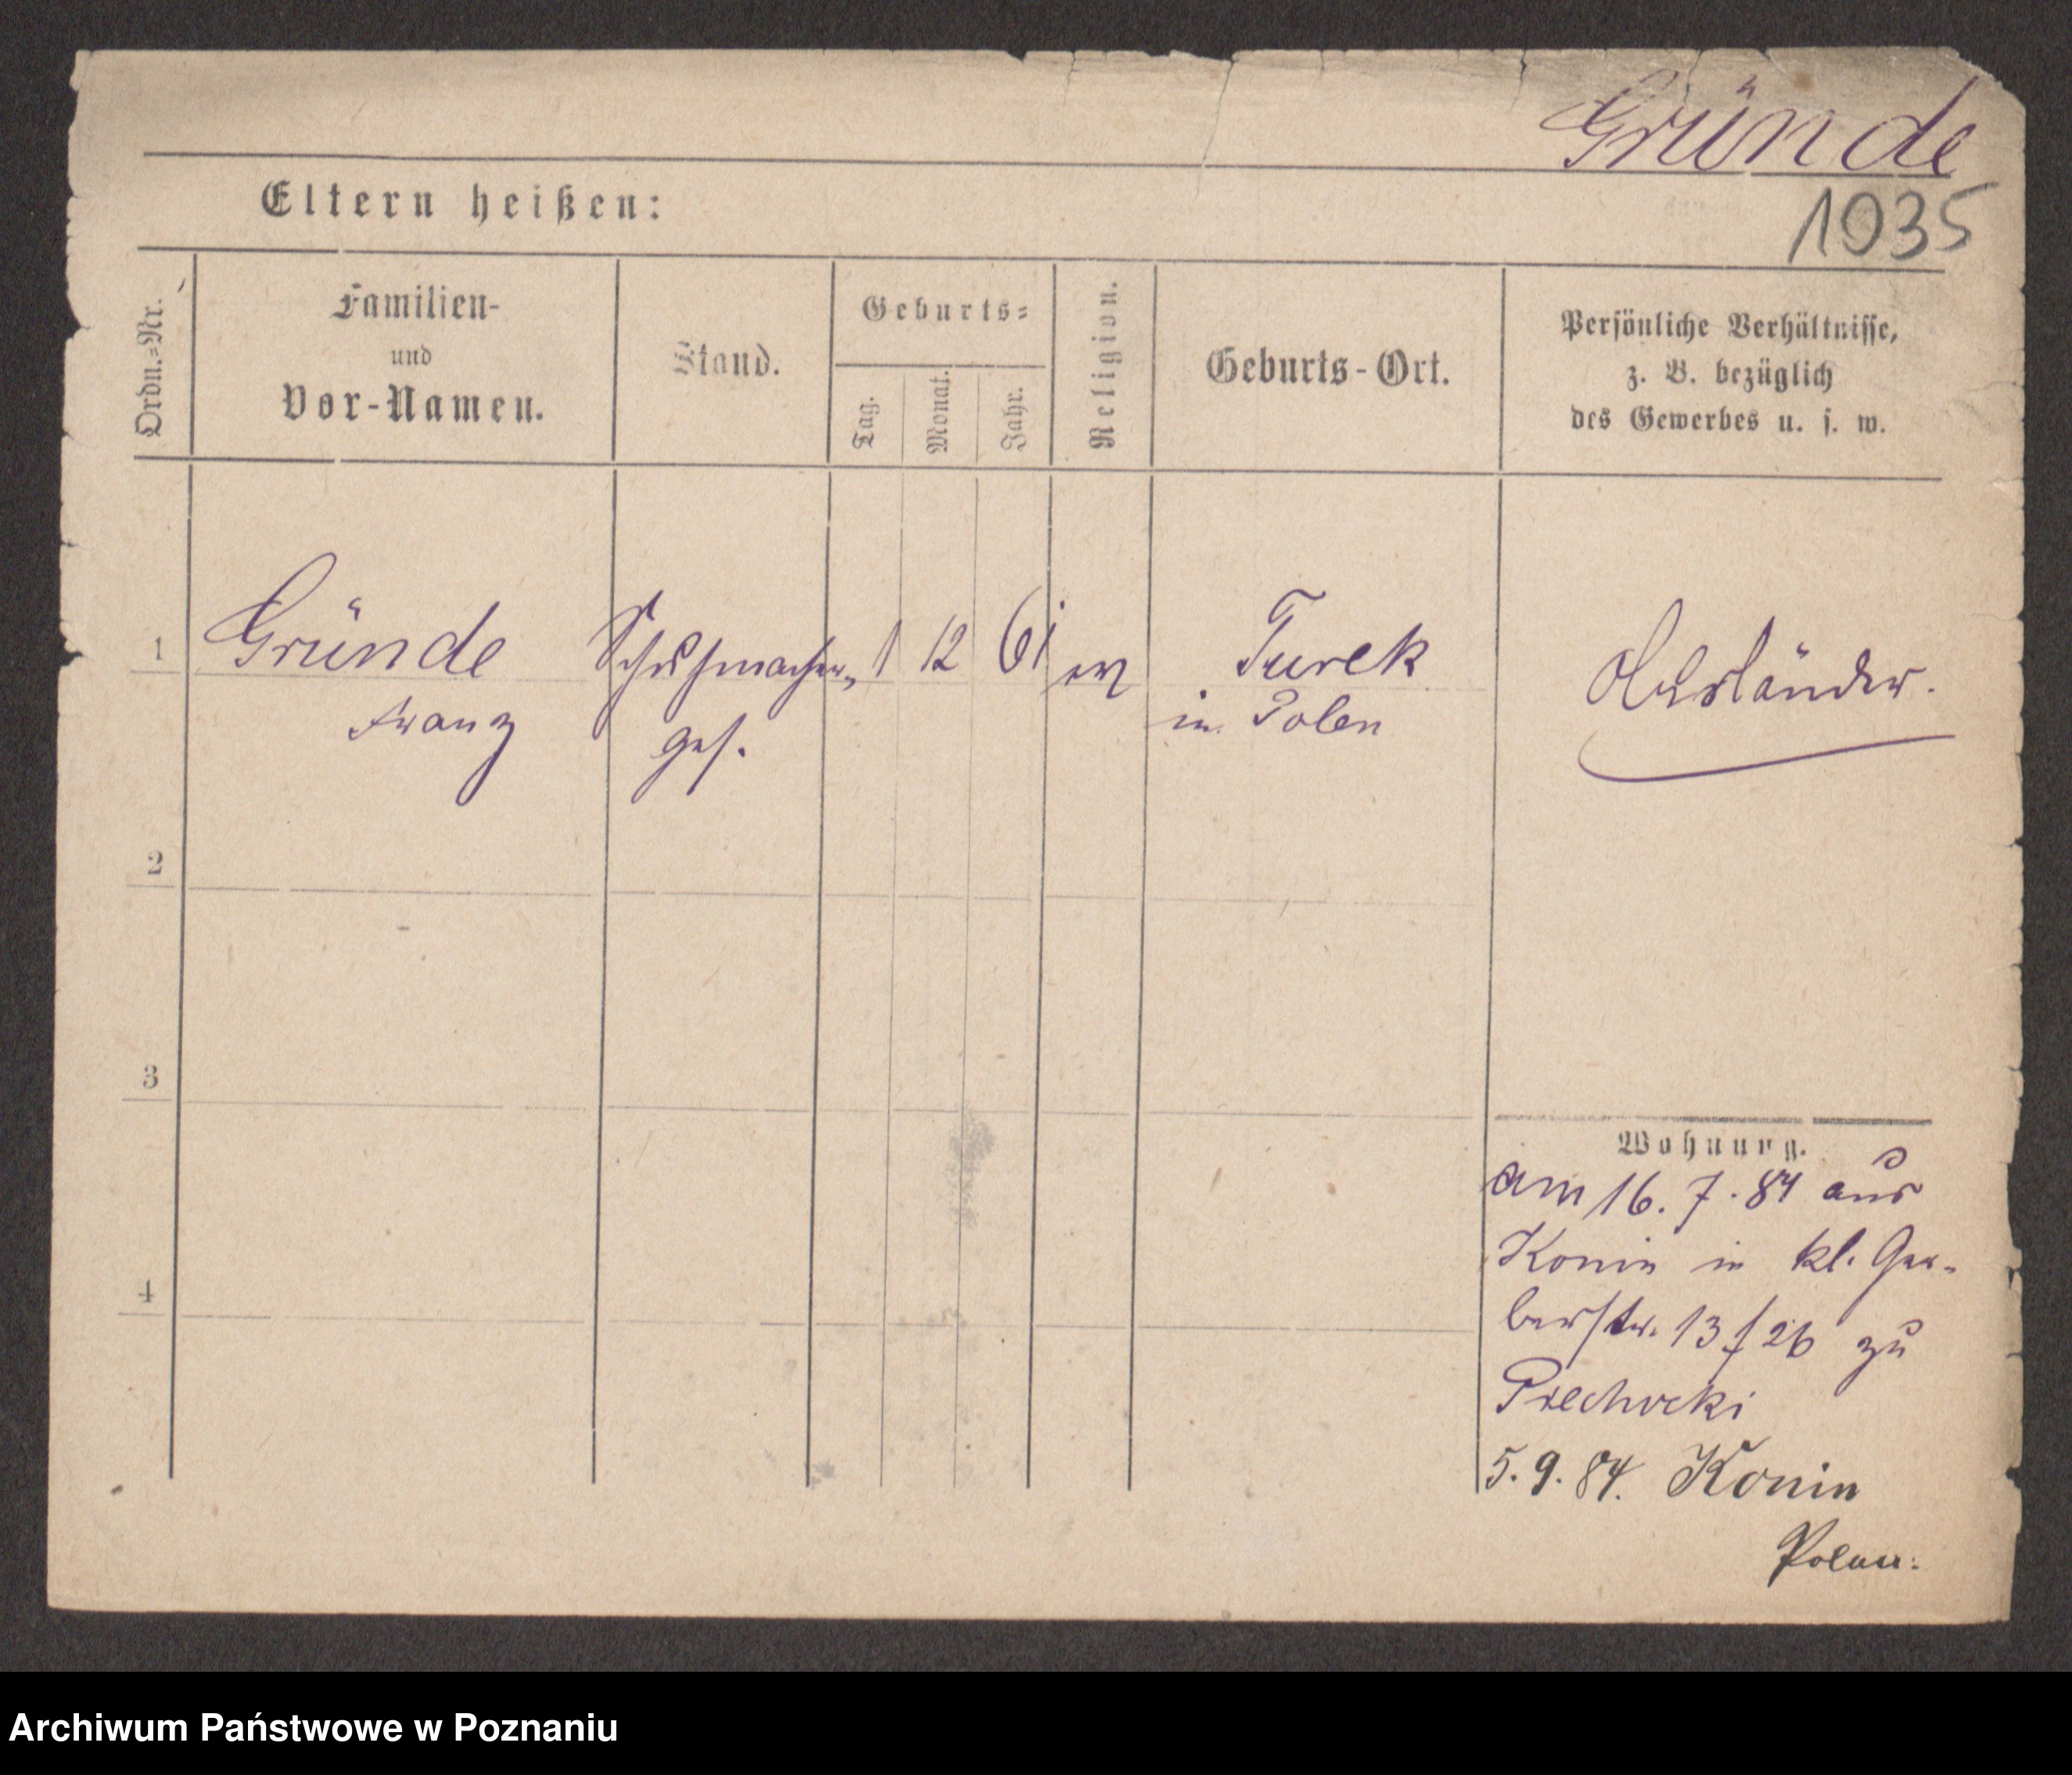 Gründe
Eltern heißen:
1035
Ordn.=Nr.
Familien-
und
Vor-Namen.
Stand.
Geburts=
Tag.
Monat.
Jahr.
Religion.
Geburts-Ort.
Persönliche Verhältnisse,
z. B. bezüglich
des Gewerbes u. s. w.
1
Gründe Schuhmacher- 1 12 61 ev Turek Ausländer.
Franz ges. in Polen
2
3
4
Wohnung.
am 16. 7. 84 aus
Konin in kl. Ger-
berstr. 13/26 zu
5. 9. 84. Konin
Polen.
Archiwum Państwowe w Poznaniu